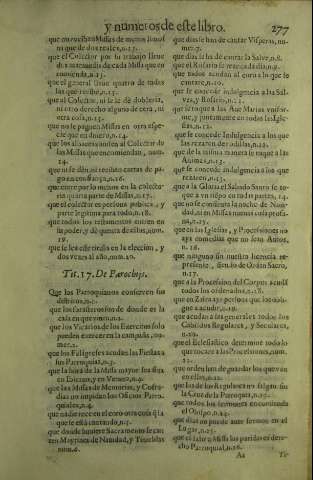 y numeros de este libro. 277
que no reciban Missas de menos limosna
que de dos reales, n.12.
que el Colector por su trabajo lleue
cada Missa que en
comienda, n.13.
que el general lleue quatro de todas
las que recibe, n.13.
que al Colector, ni se le dè dobleria,
ni otro derecho alguno de cera, ni
otra cosa, n.13.
que no se paguen Missas en otra espe-
cie que en dinero, n.14.
Colector de
las Missas que encomiendan, num.
14.
que ni se dèn, ni reciban cartas de pa-
que entre por lo menos en la colecto-
ria quarta parte de Missas, n.17.
que el Colector es persona publica, y
parte legitima para todo, n.18.
que todos los testamentos entren en
su poder, y dè quenta de ellos, num.
19.
que se les
dos vezes al año, num. 20.
Tit. 17. De Parochijs.
Que los Parroquianos conserven sus
distritos, n.1.
que los forasteros son de donde es la
casa en que
que los Vicarios de los Exercitos solo
pueden exercer en la campaña, nu-
mer. 2.
que los Feligreses acudan las Fiestas a
sus Parroquias, n.3.
que la hora de la Missa mayor sea fixa
en Inuierno, y en Verano, n.4.
que las Missas de Memorias, y Cofra-
dias no impidan los Oficios Parro-
quiales, n.4.
que nadie rece en el coro otra cosa que la
que se està cantando, n.5.
que donde huuiere Sacramento se can-
ten Maytines de Nauidad, y Tinieblas
num. 6.
que dias se han de cantar Visperas, nu-
mer. 7.
que dias se ha de cantar la Salve, n.8.
que el Rosario se reze cada dia, n.9.
que todos acudan al coro a lo que se
cantare, n.10.
que se concede indulgencia a los Sal-
ves, y Rosario, n.11.
que se toque a las Aue Marias
me, y juntamente en todas las Igle-
sias, n.12.
que se concede Indulgencia a los que
las rezaren de rodillas, n.12.
que de la misma manera se toque a las
Animas, n.13.
que se concede indulgencia a los que
rezaren, n.13.
que a la Gloria el Sabado Santo se to-
que a vn tiempo en todas partes, n.14.
que no se consienta la noche de Naui-
dad, ni en Missas nuevas cosa profa-
na, n.15.
que en las Iglesias, y Procesiones no
aya comedias que no sean Autos,
n.16.
que ninguno sin nuestra licencia re-
presente, siendo de Orden Sacro,
n.17.
que a la Procession del Corpus acudan
todos los ordenados, n.18.
que en Zaragoza
gue a acudir, n.19.
que acudan a las generales todos los
Cabildos Regulares, y Seculares,
n.20.
que el Eclesiastico determine todo lo
que tocare a las Procesiones, num.
21.
que orden han de guardar los que van
en ellas, n.22.
que las de los Regulares no salgan sin
la Cruz de la Parroquia, n.23.
que todos los sermones encomienda
el Obispo, n.24.
que dias no puede auer sermon en el
Lugar, n.25.
Parroquial, n.26.
Aa Tit